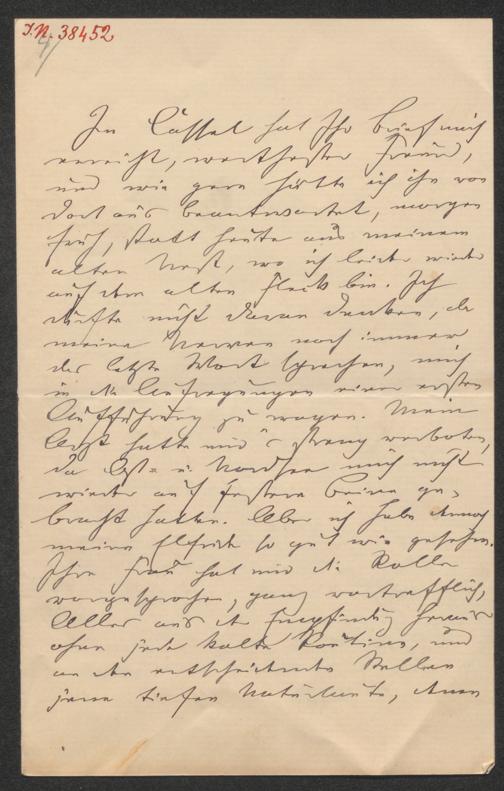 I.N. 38452
4/
In Cassel hat Ihr Brief mich
erreicht, werthester Freund,
und wie gern hätte ich ihn von
dort aus beantwortet, morgen
früh, statt heute aus meinem
alten Nest, wo ich leider wieder
auf dem alten Fleck bin. Ich
durfte nicht daran denken, da
meine Nerven noch immer
das letzte Wort sprechen, mich
in die Aufregungen einer ersten
Aufführung zu wagen. Mein
Arzt hatte mir's streng verboten,
da Ost- u. Nordsee mich nicht
wieder auf festere Beine ge-
bracht hatten. Aber ich habe dennoch
meine Elfride so gut wie gesehen.
Ihre Frau hat mir die Rolle
vorgesprochen, ganz vortrefflich,
Alles aus der Empfindung heraus
ohne jede kalte Routine, und
an den entscheidenden Stellen
jene tiefen Naturlaute, denen